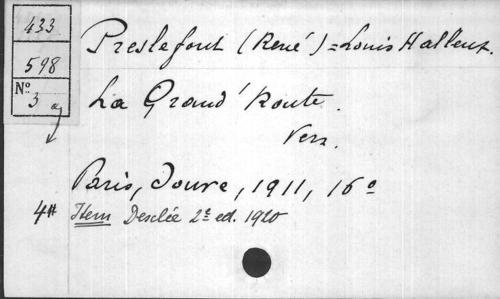 433
598
No
3 a
Preslefont (René) = Louis Halleux.
La Grand' Route.
Vers.
Paris, Jouve, 1911, 16o
4# Item Desclée 2e ed. 1920